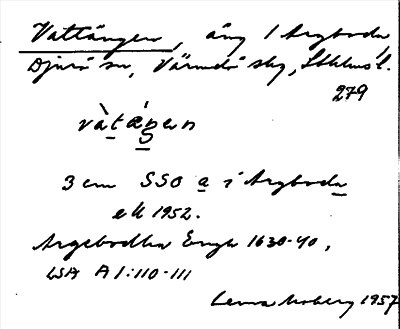 Vattängen, äng i Argboda,
Djurö sn, Värmdö skg, Sthlms l.
279
3 cm SSO a i Argboda
ek 1952.
Argebodha Engh 1630-40,
LSA A 1:110-111
Lena Moberg 1957